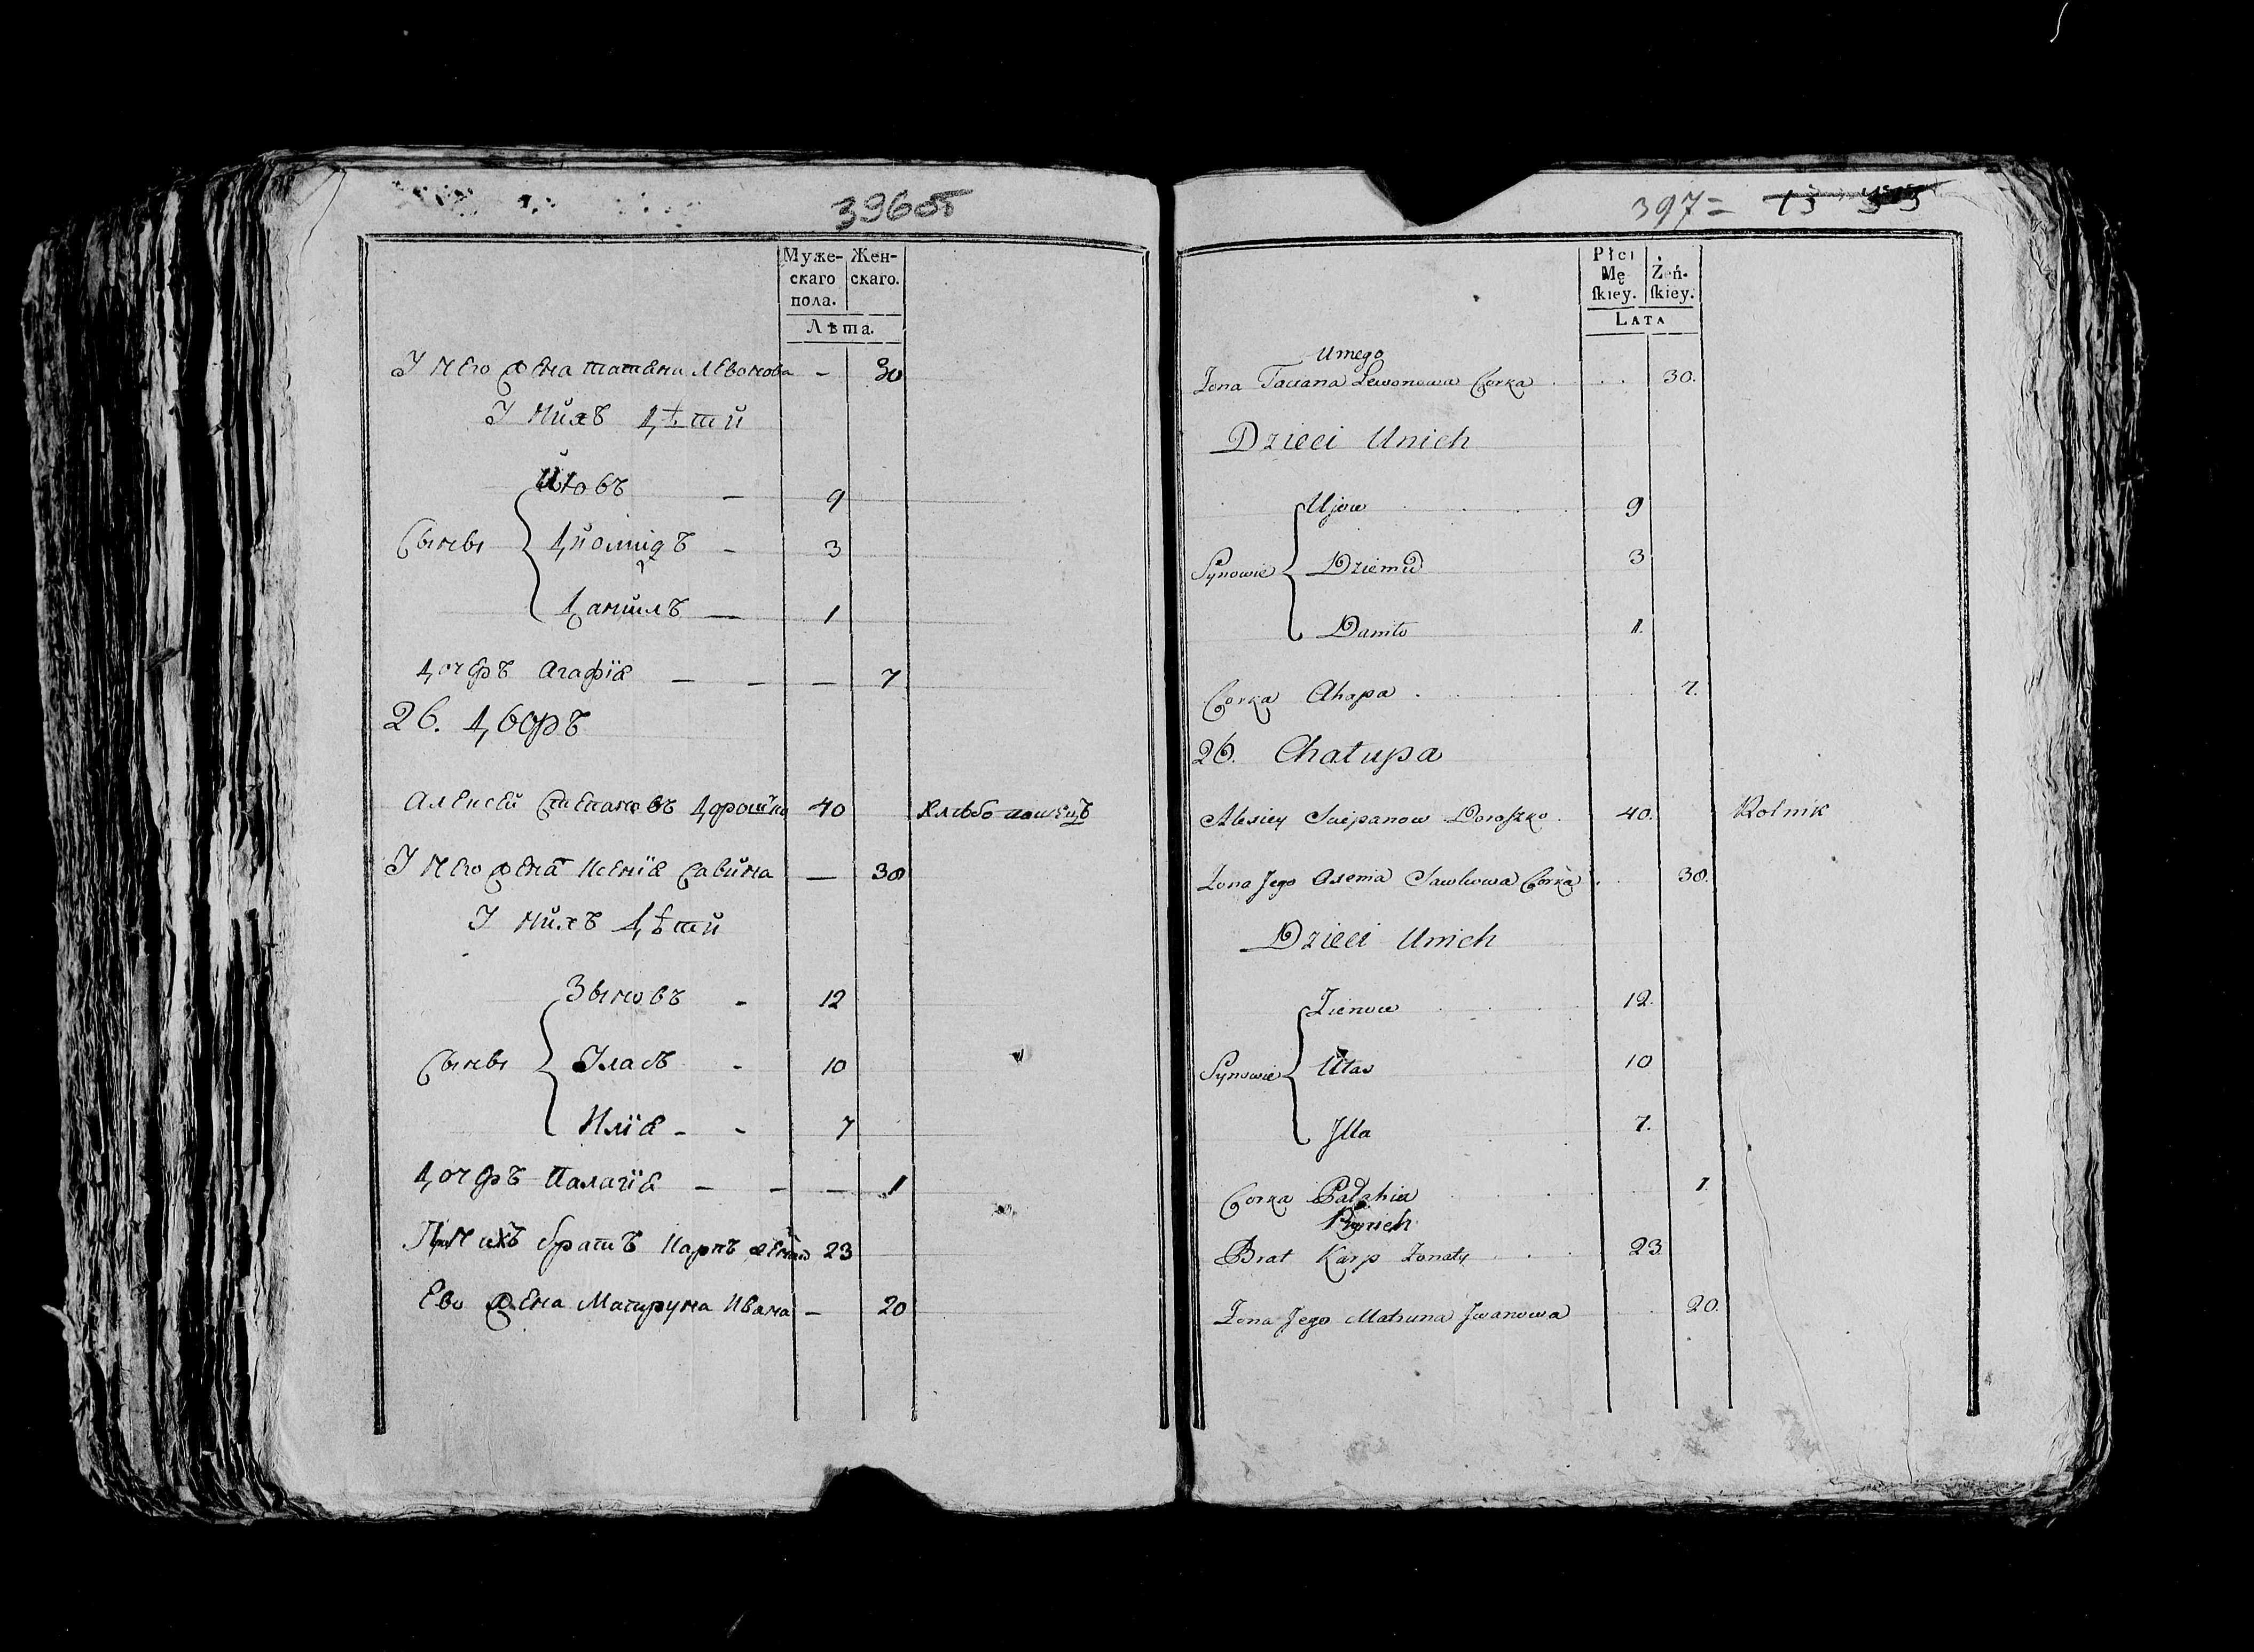 396об
Муже-
скаго
пола.
Жен-
скаго.
Лѣта.
У него жена Татяна Левонова — 30
У нихъ дѣти
Сынвы
Ийовъ — 9
Дйомидъ — 3
Данилъ — 1
Дочеръ Агафія — — — 7
26. Дворъ
Алексей Степановъ Дорошко 40 Хлѣбопашецъ
У него жена Ксенія Савина — 30
У нихъ дѣти
Сынвы
Зыновъ - 12
Уласъ - 10
Илія - - 7
Дочеръ Палагія — — — 1
При нихъ братъ Карпъ 23
Ево жена Матруна Ивана — 20
397= 13
Płci
Mę
skiey.
Żeń-
skiey.
Lata
Uniego
Zona Taciana Lewonowa Corka . . . 30.
Dzieci Unich
Synowie
Ujow 9
Dziemid 3
Daniło 1.
Corka Ahapa . 7.
26. Chałupa
Alexiey Sciepanow Doroszko . 40. Rolnik
Zona Jego Axenia Sawkowa Corka . 30.
Dzieci Unich
Synowie
Zienow 12.
Ułas 10
Jlla 7.
Corka Palahia 1.
Brat Karp Zonaty 23.
Zona Jego Matruna Jwanowa 20.